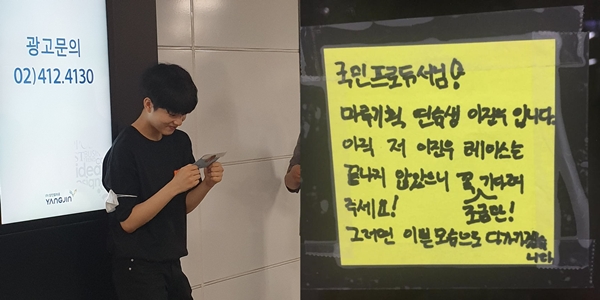 광고문의
02)412.4130
YANGJIN
국민프로듀서님!
마루기획 연습생 이진우 입니다.
아직 저 이진우 레이스는
끝나지 않았으니 꼭 기다려
주세요! 조금만!
그러면 이쁜모습으로 다가가겠습
니다